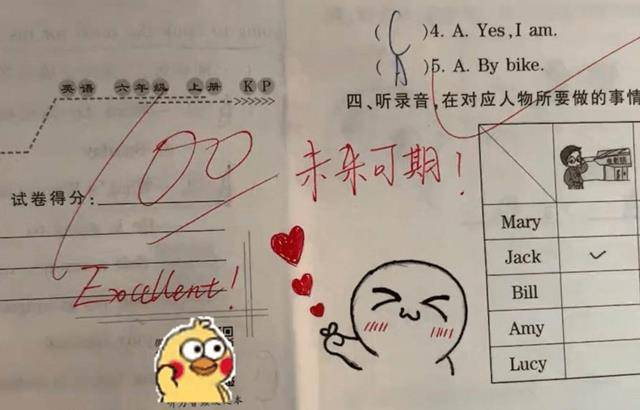 英语 六年级 上册 KP >>>>>>
100
试卷得分:
Excellent!
未来可期！
( C )4. A. Yes, I am.
( A )5. A. By bike.
四、听录音,在对应人物所要做的事情
Mary
Jack ✓
Bill
Amy
Lucy